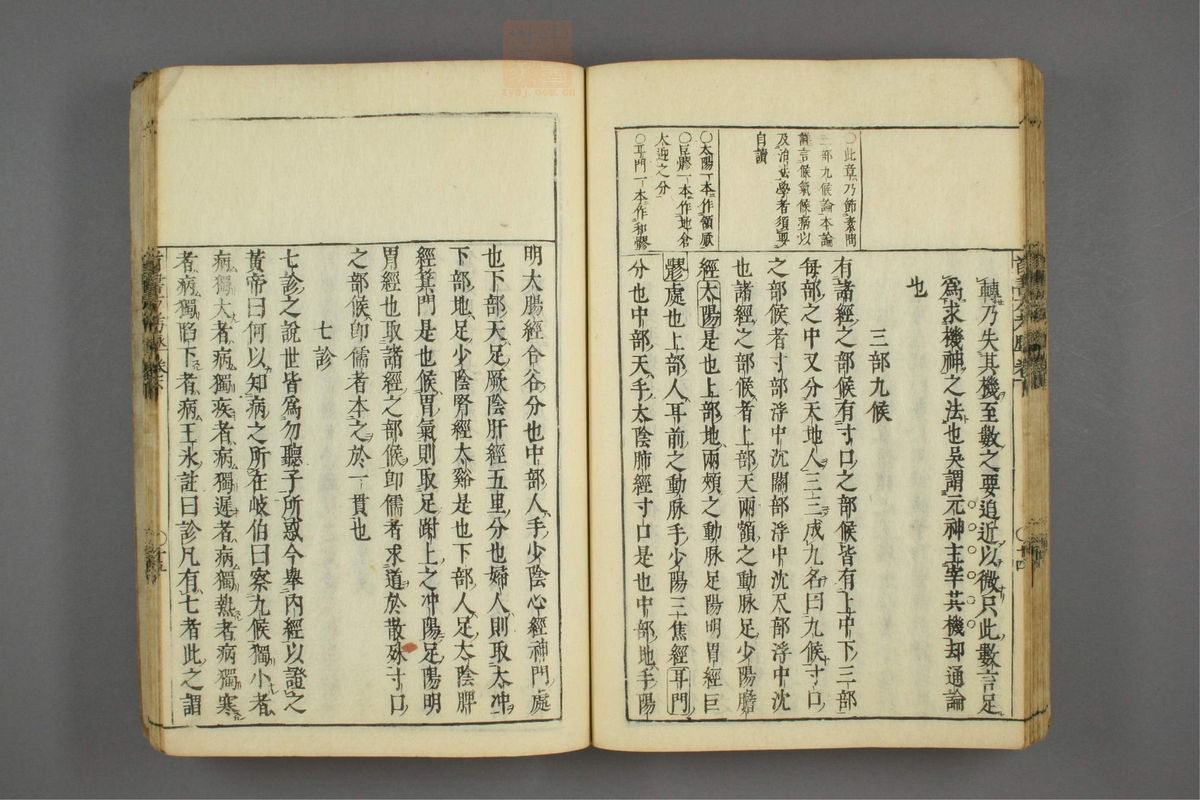 ○此章乃節素問
三部九候論本論
詳言候氣候病以
及治法學者須要
自讀
○太陽一本作頷厭
○巨膠一本作地倉
大迎之分
○耳門一本作和髎
轉乃失其機至數之要迫近以微只此數言足
為求機神之法也吳謂元神主宰其機却通論
也
三部九候
有諸經之部候有寸口之部候皆有上中下三部
每部之中又分天地人三三成九名曰九候寸口
之部候者寸部浮中沉關部浮中沈尺部浮中沈
也諸經之部候者上部天兩額之動脉足少陽膽
經太陽是也上部地兩頰之動脉足陽明胃經巨
髎處也上部人耳前之動脉手少陽三焦經耳門
分也中部天手太陰肺經寸口是也中部地手陽
明大腸經合谷分也中部人手少陰心經神門處
也下部天足厥陰肝經五里分也婦人則取太冲
下部地足少陰腎經太谿是也下部人足太陰脾
經箕門是也候胃氣則取足跗上之冲陽足陽明
胃經也取諸經之部候卽儒者求道於散殊寸口
之部候卽儒者本之於一貫也
七診
七診之說世皆為勿聽子所惑今舉內經以證之
黃帝曰何以知病之所在岐伯曰察九候獨小者
病獨大者病獨疾者病獨遲者病獨熱者病獨寒
者病獨陷下者病王氷註曰診凡有七者此之謂
○十四
○十五